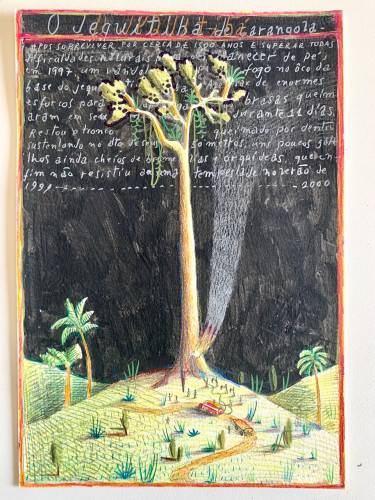 O Jequitibá de Carangola
APÓS SOBREVIVER POR CERCA DE 1500 ANOS E SUPERAR TODAS
dificuldades naturais permanecer de pé,
em 1997 um fogo no ôco da
base do jequi de enormes
esforços para brasas queim
aram em seu durante 11 dias.
Restou o tronco queimado por dentro
sustentando no alto metros, uns poucos ga
lhos ainda cheios de bromélias e orquídeas, que en
fim não resistiu a uma tempestade no verão de
1999 - 2000